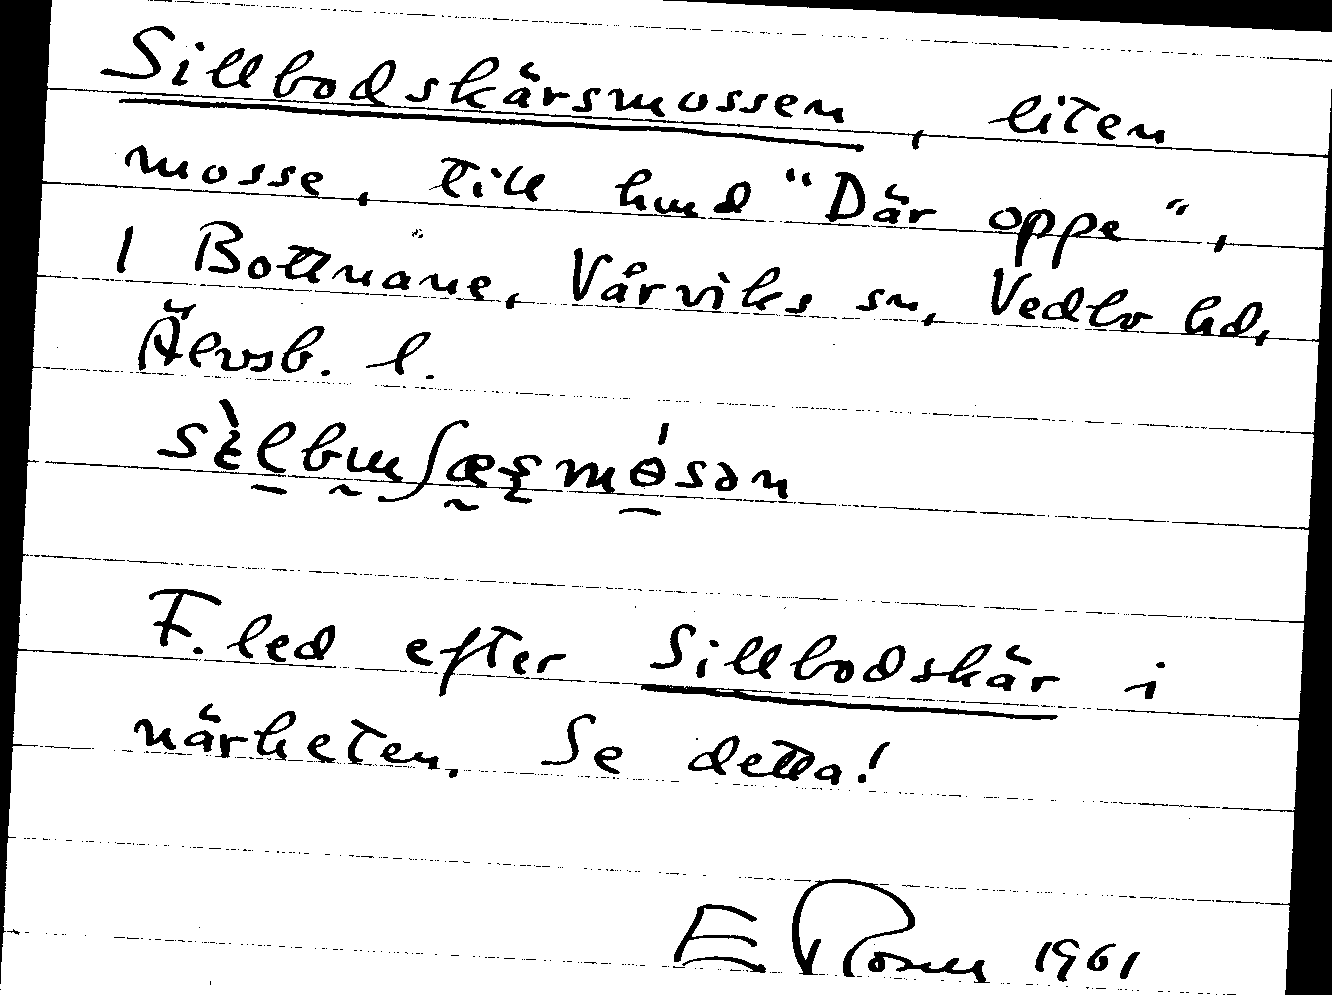 Sillbodskärsmossen, liten
mosse, till hmd "Där oppe",
i Bottnane, Vårviks sn, Vedbo hd,
Älvsb. l.
F. led efter Sillbodskär i
närheten. Se detta!
E 1961